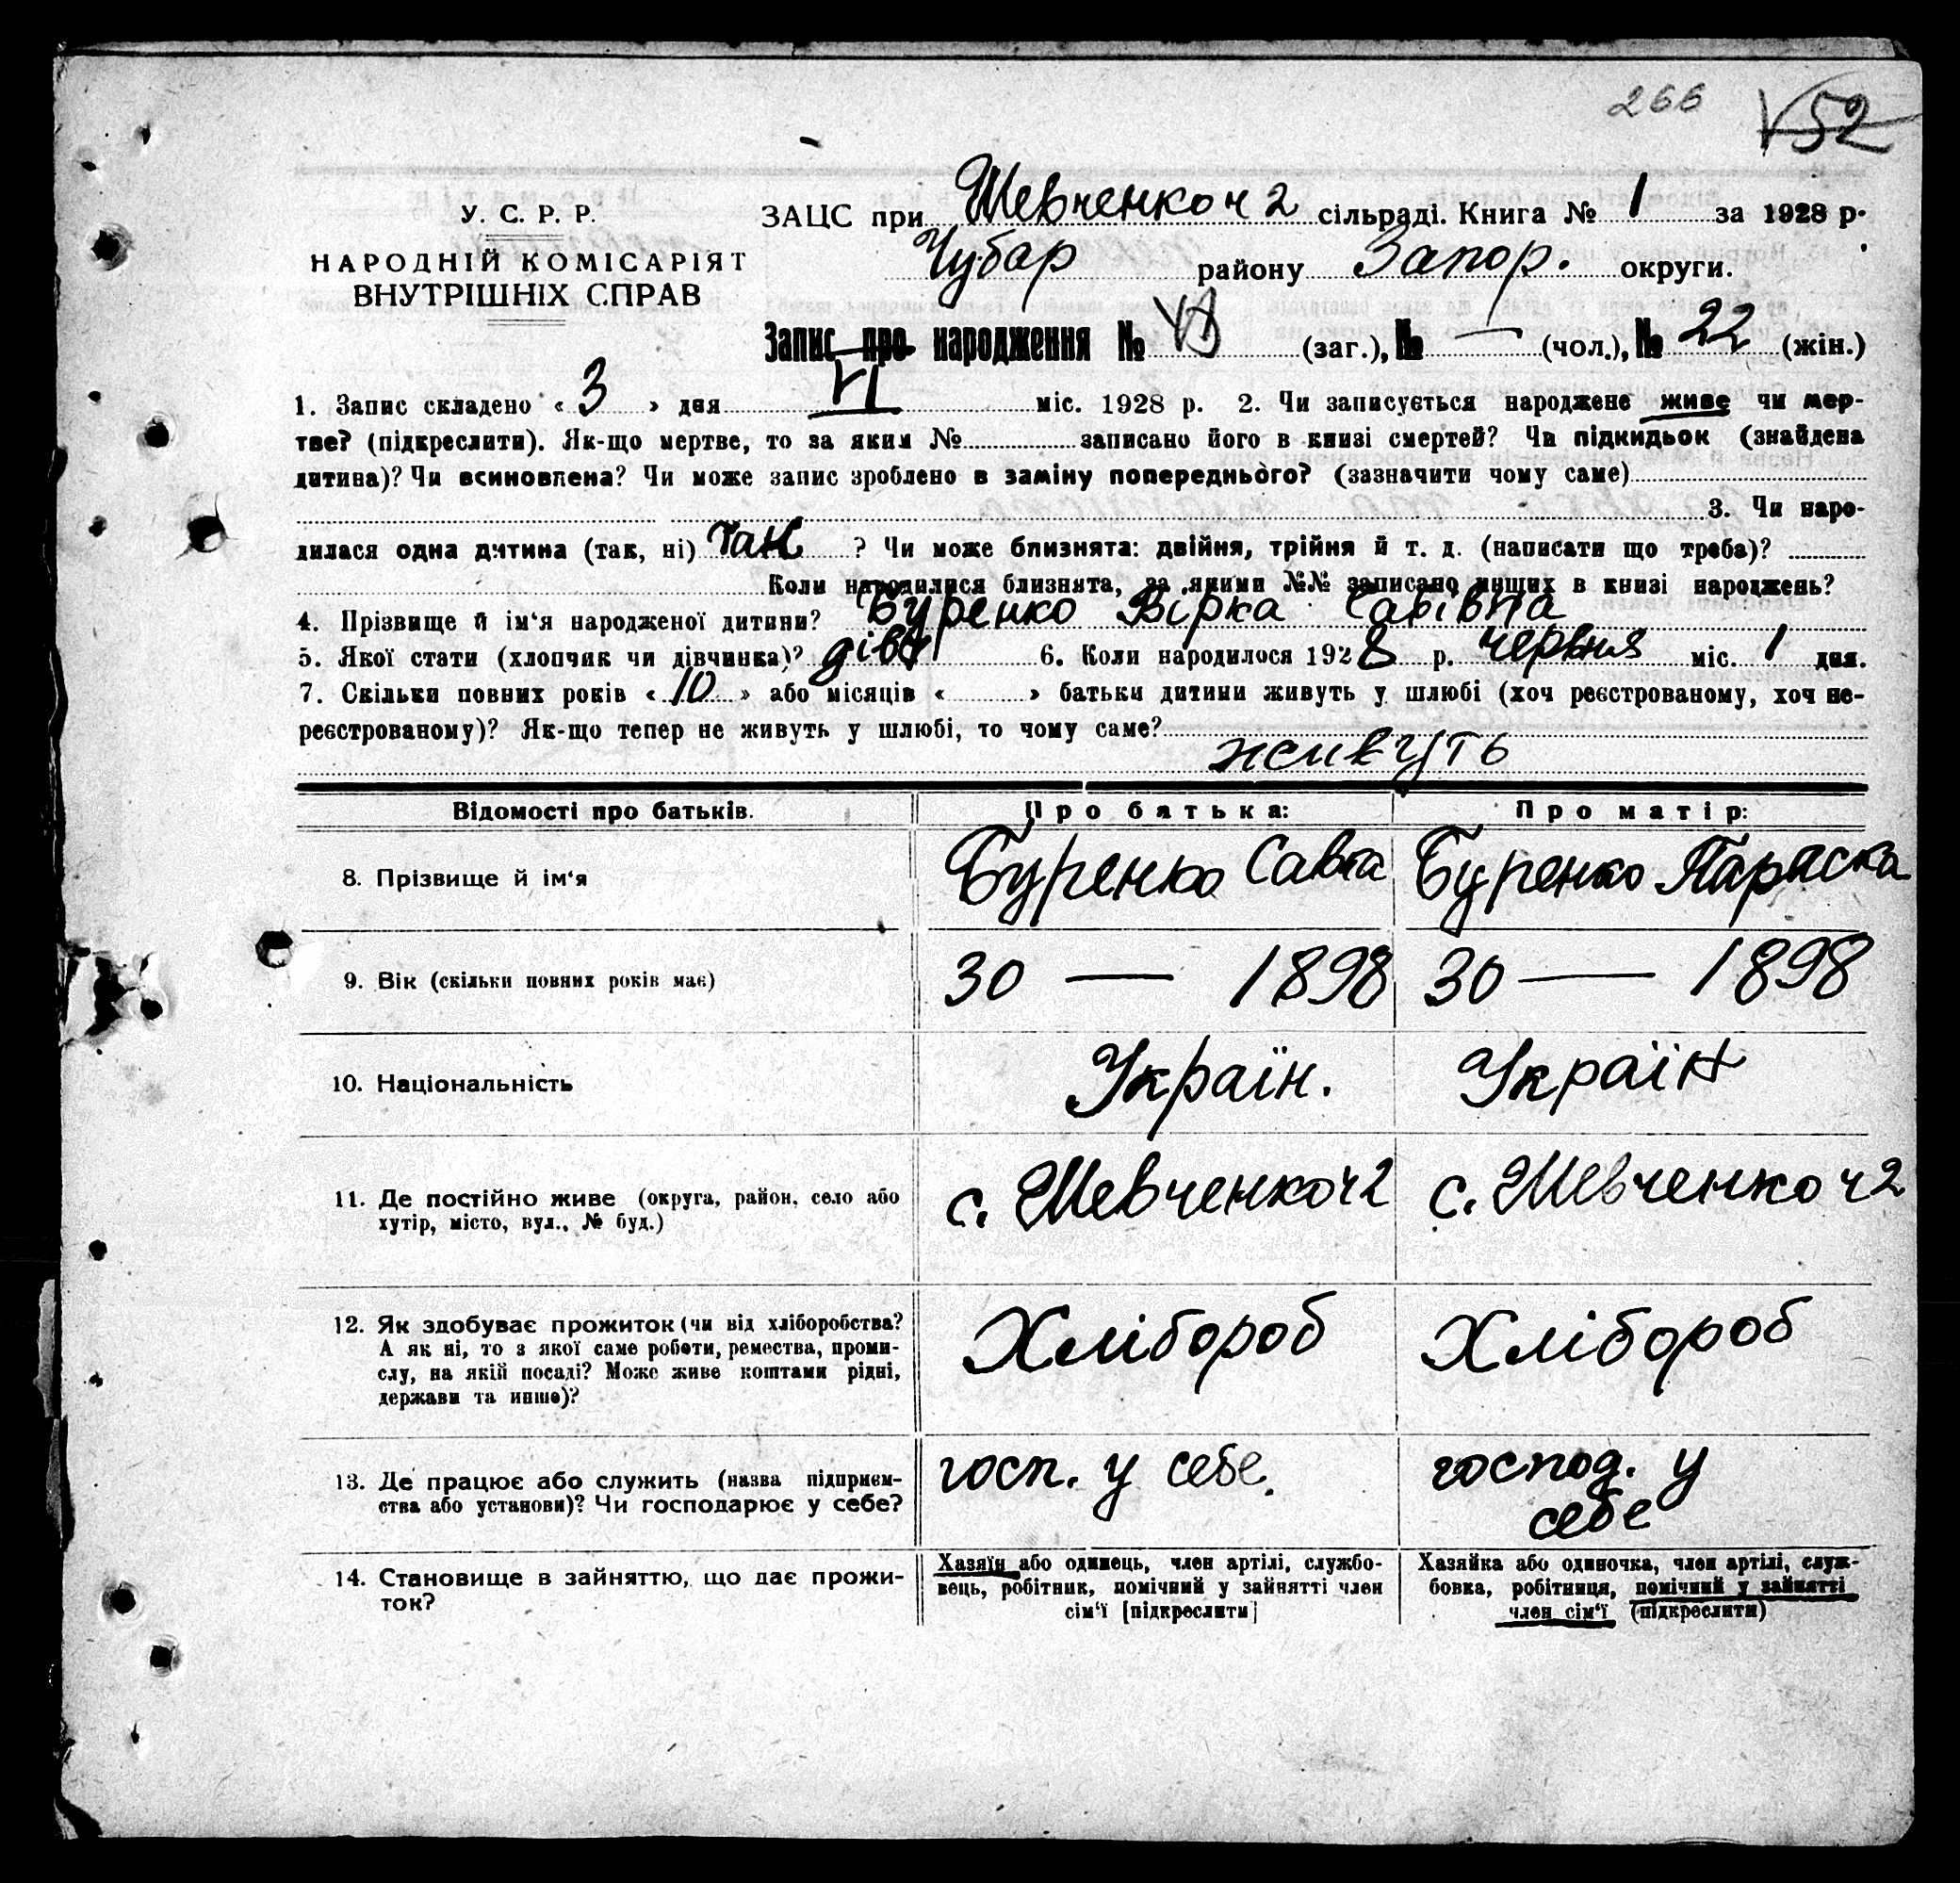 266 52
У. С. Р. Р.
НАРОДНІЙ КОМІСАРІЯТ
ВНУТРІШНІХ СПРАВ
ЗАЦС при Шевченко ч 2 сільраді. Книга № 1 за 1928 р.
Чубар району Запор. округи.
Запис про народження № (заг.), № — (чол.), № 22 (жін.)
1. Запис складено « 3 » дня VI міс. 1928 р. 2. Чи записується народжене живе чи мер-
тве? (підкреслити). Як-що мертве, то за яким № записано його в книзі смертей? Чи підкидьок (знайдена
дитина)? Чи всиновлена? Чи може запис зроблено в заміну попереднього? (зазначити чому саме)
3. Чи наро-
дилася одна дитина (так, ні) так ? Чи може близнята: двійня, трійня й т. д. (написати що треба)?
Коли народилися близнята, за якими №№ записано инших в книзі народжень?
4. Прізвище й ім'я народженої дитини? Буренко Вірка Савівна
5. Якої стати (хлопчик чи дівчинка)? дівч 6. Коли народилося 1928 р. червня міс. 1 дня.
7. Скільки повних років « 10 » або місяців « » батьки дитини живуть у шлюбі (хоч реєстрованому, хоч не-
реєстрованому)? Як-що тепер не живуть у шлюбі, то чому саме?
живуть
Відомості про батьків. Про батька: Про матір:
8. Прізвище й ім'я Буренко Савва Буренко Параска
9. Вік (скільки повних років має) 30 — 1898 30 — 1898
10. Національність Україн. Україн
11. Де постійно живе (округа, район, село або
хутір, місто, вул., № буд.)
с. Шевченко ч2 с. Шевченко ч2
12. Як здобуває прожиток (чи від хліборобства?
А як ні, то з якої саме роботи, ремества, проми-
слу, на якій посаді? Може живе коштами рідні,
держави та инше)?
Хлібороб Хлібороб
13. Де працює або служить (назва підприєм-
ства або установи)? Чи господарює у себе?
госп. у себе. господ. у
себе
14. Становище в зайняттю, що дає прожи-
ток?
Хазяїн або одинець, член артілі, службо-
вець, робітник, помічний у зайнятті член
сім'ї [підкреслити]
Хазяйка або одиночка, член артілі, служ-
бовка, робітниця, помічний у зайнятті
член сім'ї (підкреслити)